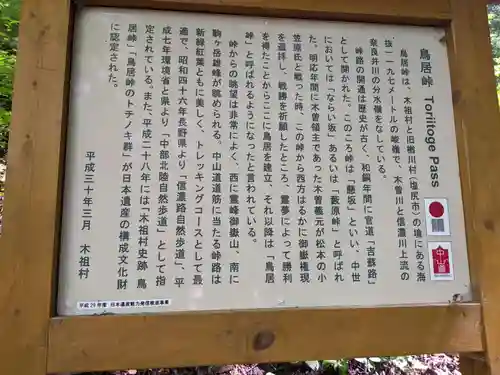 鳥居峠　Toriitoge Pass
鳥居峠は、木祖村と旧楢川村（塩尻市）の境にある海
抜一一九七メートルの峻嶺で、木曽川と信濃川上流の
奈良井川の分水嶺をなしている。
峠路の開通は歴史が古く、和銅年間に官道「吉蘇路」
として開かれた。このころ峠は「懸坂」といい、中世
においては「ならい坂」あるいは「藪原峠」と呼ばれ
た。明応年間に木曽領主であった木曽義元が松本の小
笠原氏と戦った時、この峠から西方はるかに御嶽権現
を遥拝し、戦勝を祈願したところ、霊夢によって勝利
を得たことからここに鳥居を建立、それ以降は「鳥居
峠」と呼ばれるようになったと言われている。
峠からの眺望は非常によく、西に霊峰御嶽山、南に
駒ヶ岳雄峰が眺められる。中山道道筋に当たる峠路は
新緑紅葉ともに美しく、トレッキングコースとして最
適で、昭和四十六年長野県より「信濃路自然歩道」、平
成七年環境省と県より「中部北陸自然歩道」として指
定されている。また、平成二十八年には「木祖村史跡　鳥
居峠」「鳥居峠のトチノキ群」が日本遺産の構成文化財
に認定された。
平成三十年三月　木祖村
中山道
平成29年度 日本遺産魅力発信推進事業